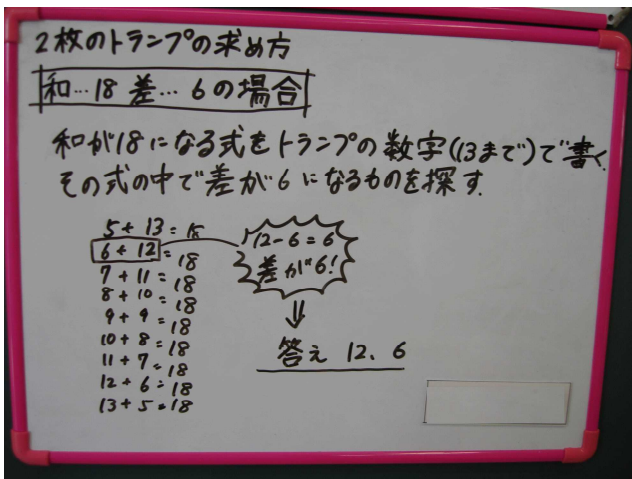 2枚のトランプの求め方
和…18 差…6の場合
和が18になる式をトランプの数字(13まで)で書く.
その式の中で差が6になるものを探す.
5+13=18
6+12=18
7+11=18
8+10=18
9+9=18
10+8=18
11+7=18
12+6=18
13+5=18
12-6=6
差が6!
⇓
答え 12、6